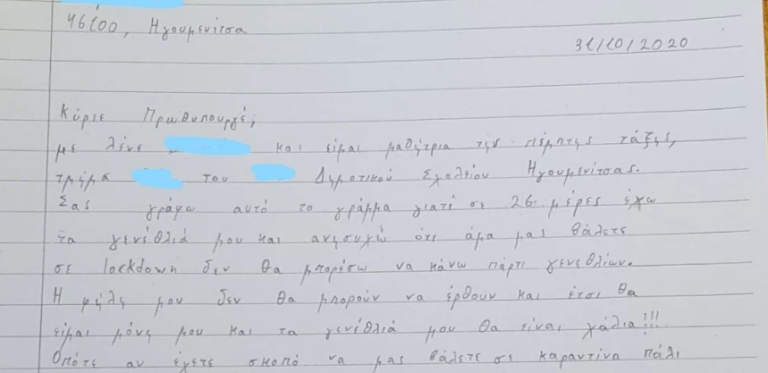 46100, Ηγουμενίτσα
31/10/2020
Κύριε Πρωθυπουργέ,
με λένε και είμαι μαθήτρια της πέμπτης τάξης,
τμήμα του Δημοτικού Σχολείου Ηγουμενίτσας.
Σας γράφω αυτό το γράμμα γιατί σε 26 μέρες έχω
τα γενέθλιά μου και ανησυχώ ότι άμα μας βάλετε
σε lockdown δεν θα μπορέσω να κάνω πάρτι γενεθλίων.
Η φίλες μου δεν θα μπορούν να έρθουν και έτσι θα
είμαι μόνη μου και τα γενέθλιά μου θα είναι χάλια!!!
Οπότε αν έχετε σκοπό να μας βάλετε σε καραντίνα πάλι